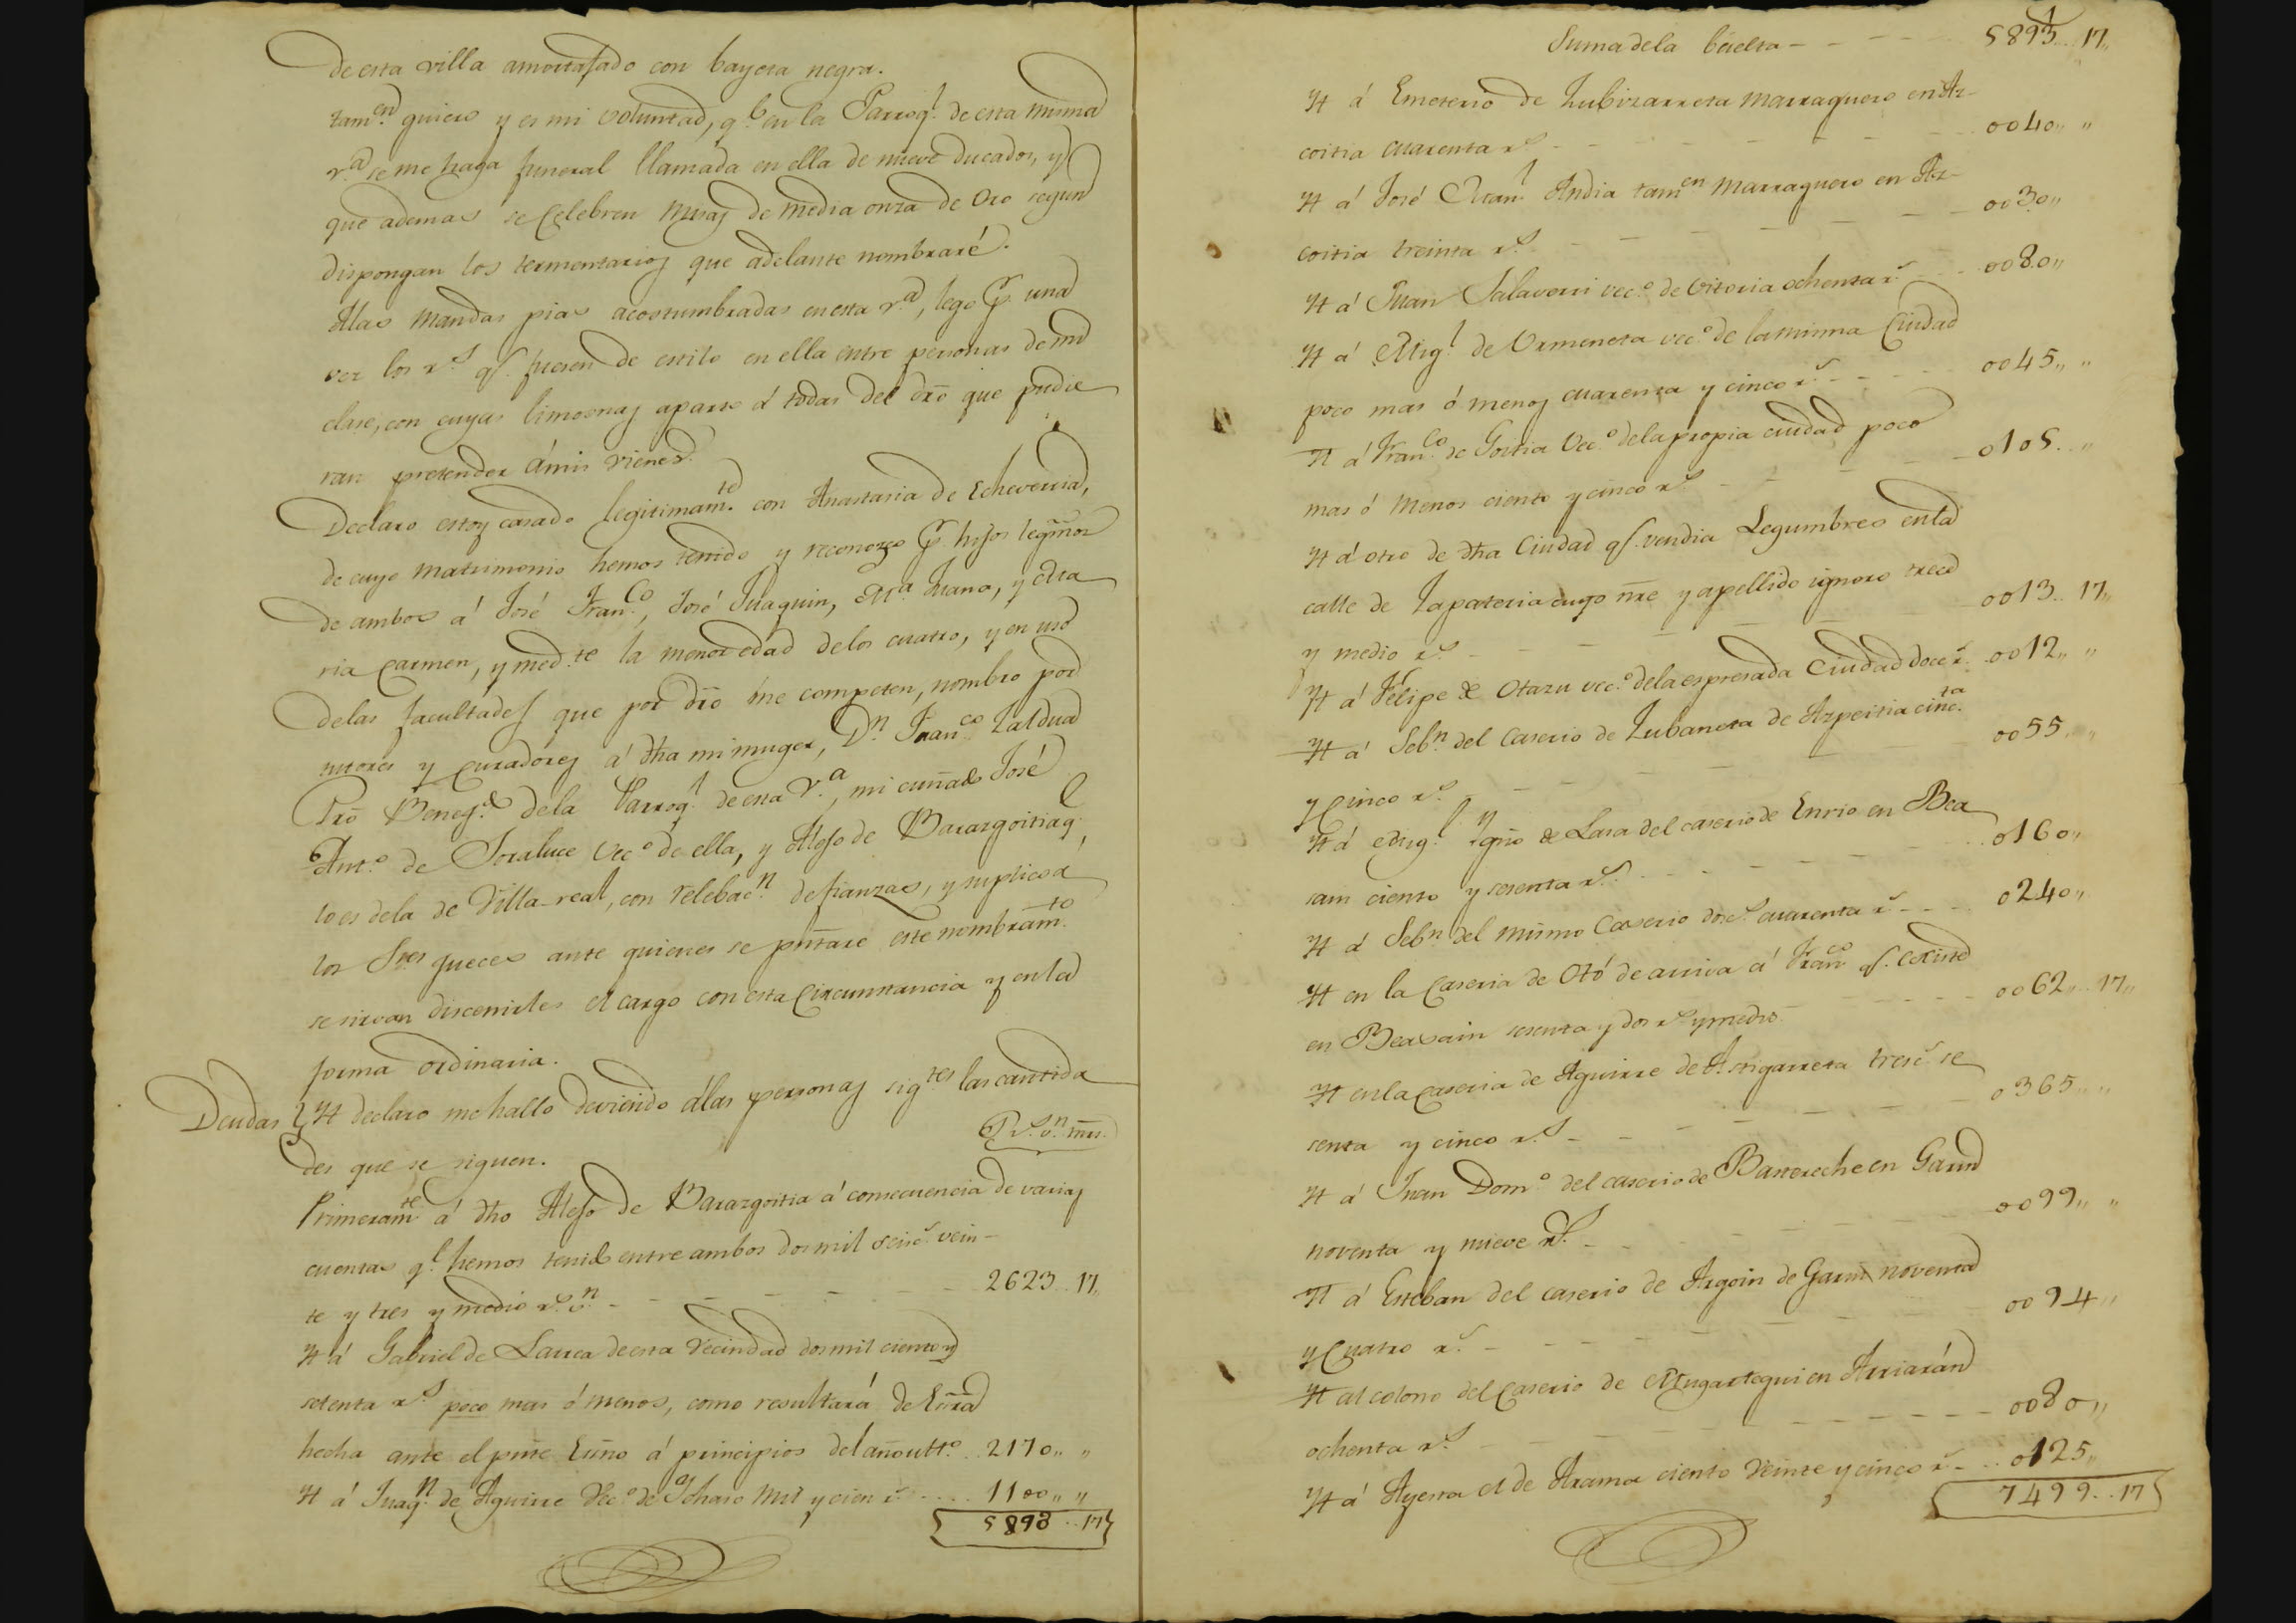 de esta villa amortajado con bayeta negra.
tamen. quiero y es mi voluntad, qe. en la Parroql. de esta misma
va. se me haga funeral llamada en ella de nueve ducados, y
que ademas se celebren misas de media onza de Oro segun
dispongan los termentarios que adelante nombraré.
Alas mandas pias acostumbradas en esta va., lego pr. una
vez los rs. qe. fueren de estilo en ella entre personas de mi
clase, con cuyas limosnas aparto á todas del dro que pudie
ran pretender á mis vienes.
Declaro estoy casado legitimamte. con Anastasia de Echeverria,
de cuyo matrimonio hemos tenido y reconozco pr. hijos legmos
de ambos á José Franco., José Juaquin, Ma. Juana, y Ma
ria Carmen, y medte. la menor edad de los cuatro, y en uso
delas facultades que por dro me competen, nombro por
tutores y curadores á dha mi muger, Dn. Franco. Zaldua
Pro Benefdo. dela Parroql. de esta Va., mi cuñado José
Anto. de Soraluce Veco. de ella, y Alejo de Barazgoitia qe.
lo es dela de Villa-real, con relebacn. de fianzas, y suplico á
los Sres jueces ante quienes se pntare este nombramto.
se sirvan discernirles el cargo con esta circunstancia y en la
forma ordinaria.
Deudas } Yt declaro me hallo deviendo álas personas sigtes las cantida
des que se siguen. Rs. vn. mrs.
Primeramte á dho Alejo de Barazgoitia á consecuencia de varias
cuentas qe. hemos tenido entre ambos dos mil seisc. vein-
te y tres y medio rs. vn. - - - - - 2623..17,,
Yt á Gabriel de Laurca de esta vecindad dos mil ciento y
setenta rs. poco mas ó menos, como resultará de Esñra
hecha ante el pnte Esño á principios del año ultto. 2170,, ,,
Yt á Juaqn. de Aguirre Veco. de Ichaso mil y cien rs. .... 1100,, ,,
5893..17
Suma dela buelta - - - - 5893..17,,
Yt á Emeterio de Zubizarreta marraguero en Az-
coitia cuarenta rs. - - - - - 0040,, ,,
Yt á José Man. Andia tamen marraguero en Az-
coitia treinta rs. - - - - - 0030,,
Yt á Juan Salaverri veco. de Vitoria ochenta rs. - - 0080,,
Yt á Migl. de Urmeneta veco. de la misma Ciudad
poco mas ó menos cuarenta y cinco rs. - - - 0045,, ,,
Yt á Franco. de Goitia Veco. dela propia ciudad poco
mas ó menos ciento y cinco rs. - - - - 0105.. ,,
Yt á otro de dha Ciudad qe. vendia Legumbres en la
calle de Zapateria cuyo nre y apellido ignoro trece
y medio rs. - - - - - 0013..17,,
Yt á Felipe de Otazu veco. dela espresada Ciudad doce rs. 0012,, ,,
Yt á Sebn. del Caserio de Zubaneta de Azpeitia cincta.
y cinco rs. - - - - - 0055,, ,,
Yt á Migl. Ygno de Lasa del caserio de Enrio en Bea
sain ciento y sesenta rs. - - - - 0160,,
Yt á Sebn del mismo Caserio dosc. cuarenta rs. - - - 0240,,
Yt en la Caseria de Otó de arriva á Franco qe. existe
en Beasain sesenta y dos rs. y medio - - - - 0062,, 17,,
Yt en la caseria de Aguirre de Astigarreta tresc. se
senta y cinco rs. - - - - - 0365,, ,,
Yt á Juan Domo. del caserio de Barreneche en Garin
noventa y nueve rs. - - - - - 0099,, ,,
Yt á Esteban del caserio de Argoin de Garin noventa
y cuatro rs. - - - - - 0094,,
Yt al colono del Caserio de Mugartegui en Arriarán
ochenta rs. - - - - - 0080,,
Yt á Ayerra el de Arama ciento veinte y cinco rs. - - 0125,,
7499..17